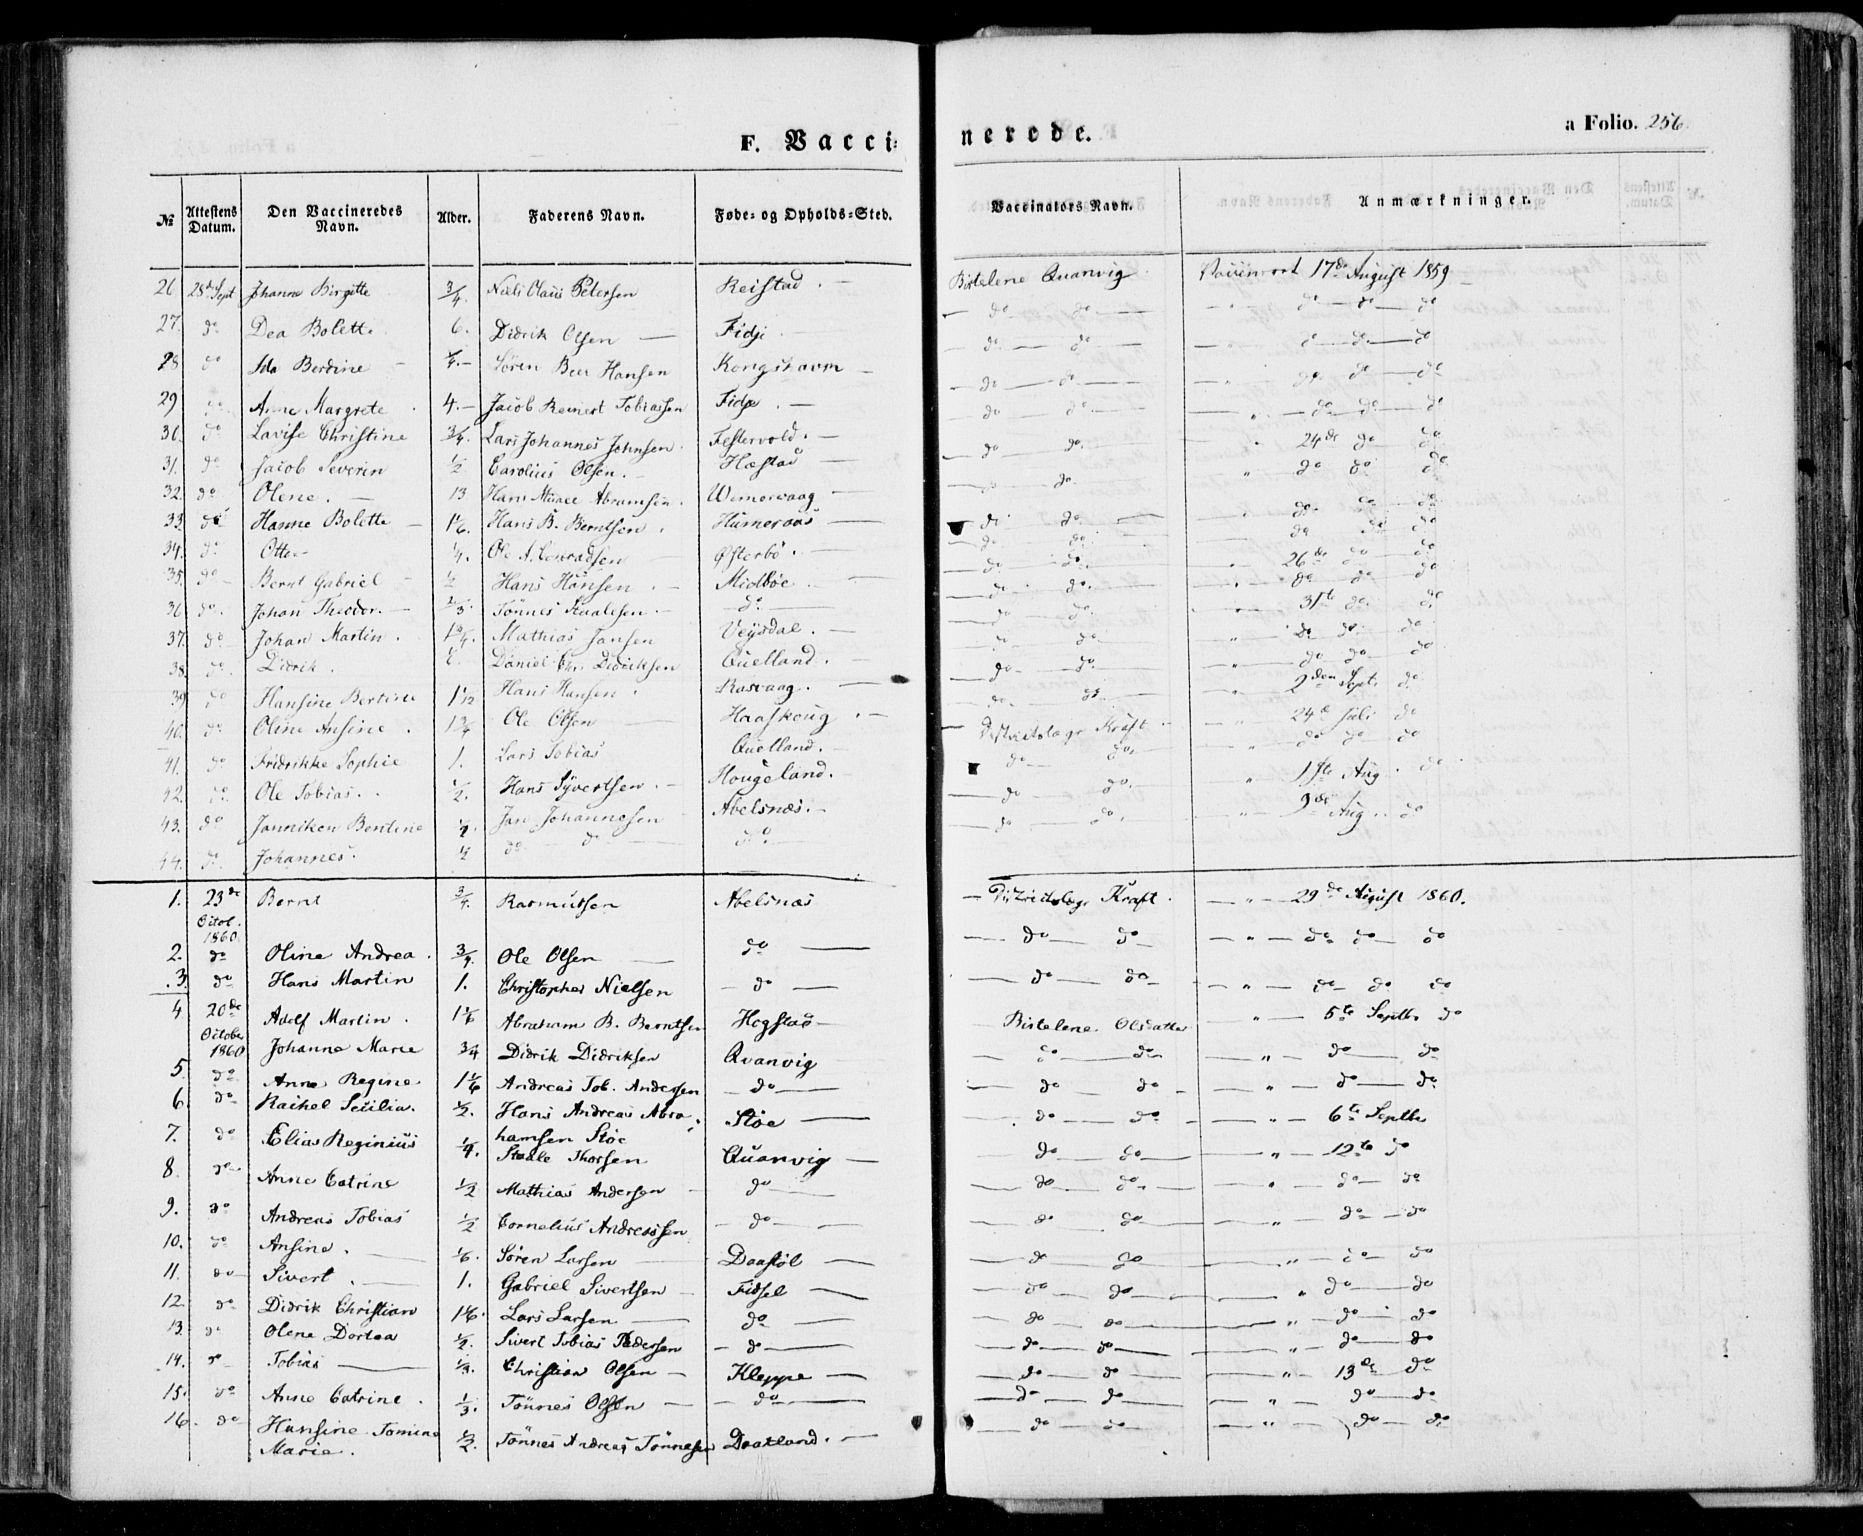 F. Vacci=
nerede.
a Folio. 256.
№ Attestens Datum. Den Vaccineredes Navn. Alder. Faderens Navn. Føde= og Opholds=Sted. Vaccinators Navn. Anmærkninger.
26 28de Sept Johanne Birgitte 3/4. Niels Olaus Petersen Reistad. — Bistelene Quanvig 17de August 1859
27. do Dea Bolette 6. Didrik Olsen — Fidje — do — do — " do — do — do
28 do Ida Berdine — Sören Beer Hansen Kongshavn — do — do — " do — do — do
29 do Anne Margrete 4.— Jacob Reinert Tobiassen Fidje. — do do — " do do do
30. do Lavise Christine 3/4. Lars Johannes Johnsen. — do do — " do do do
31. do Jacob Severin 1/2 Carolius Olsen. — do do. " 24de do do
32. do Olene. — 13 Hans Abramsen. — do. " do do do
33. do Hanne Bolette — 1 1/6. Hans B. Berntsen. — di do. — do do do
34. do Otto — 1/4. Ole A. — Østerbö. — do do do do do
35. do — Bernt Gabriel — 1/2 Hans Hansen. — Midböe. — do do. " 26de do do
36 do. Johan Theodor. — Tönnes — do — do. do do do
37. do Johan Martin. 1 3/4. Mathias Jansen — do do. 31te do. do
38. do. Didrik. Daniel Chr. Didriksen Quelland. — do. " do do do
39 do Hansine Bertine 1 1/12 Hans Hansen. Rasvaag. — do — do. do do do
40. do Oline Ansine. 1 3/4 Ole Olsen — — do. do. " 2den Sept. do
41. do Fridrikke Sophie 1. Lars Tobias Quelland. — Districtslæge Kraft. 24de Juli do
42. do Ole Tobias. 1/2. Hans Syvertsen. — Hougeland. — do do. " do do do
43. do Janniken Bentine 1/2. Jan Johannesen Abelsnæs. — do do. " 1ste Aug. do
44. do. Johannes. 1/2 do — do do. — do do. — " 9de Aug. do
1. 23de Bernt 3/4. Rasmutsen Abelsnæs — Districtslæge Kraft. — " — 29de August 1860.
Octob.
1860
2. do Oline Andrea. 3/4. Ole Olsen — do — do do — — " — do do — do
3. do Hans Martin 1. Christopher Nielsen — do — — do do — — " — do — do do
4 20de Adolf Martin. 1 1/6 Abraham B. Berntsen Hogstad — Bistelene — " — 5te Septbr do
October
1860
Johanne Marie 3/4 Didrik Didriksen Qvanvig — do — do — " — do — do
5. do Anne Regine 1 1/6 Andreas Tob. Andersen — do — — do do — — " — do — do
6. do — Rachel Scillia. 1/2. Hans Andreas Abra- Stöe — — do do — — " — 6te Septbr
hamsen Stöe
7. do Elias Reginius 1/4. Staale Thorsen Quanvig — do do — — " — 12te do
8. do — Anne Catrine 1/2 Mathias Andersen — do — — do do — — " — do — do
9. do Andreas Tobias 1/2 Cornelius Andreassen — do — — do do — — " — do — do
10. do Ansine. — 1/6. Sören Larsen — Daastöl — — do do — — " — do — do
11. do — Sivert. — 1. Gabriel Sivertsen — Fidsel — — do do — — " do — do
12. do Didrik Christian 1 1/6. Lars Larsen — do — — do do — — " — do — do
13. do Olene Dortea 1/2. Sivert Tobias Pedersen — do — — do — do — — " — do — do
14. do — Tobias — 1/3. Christian Olsen — Kleppe — — do — do — — " — 13de do
15. do Anne Catrine. 1/3. Tönnes Olsen — do — — do — do — — " — do — do
16. do Hansine Tomine 1/2. Tönnes Andreas Tönnesen Daatland. — — do — do — — " — do — do
Marie.